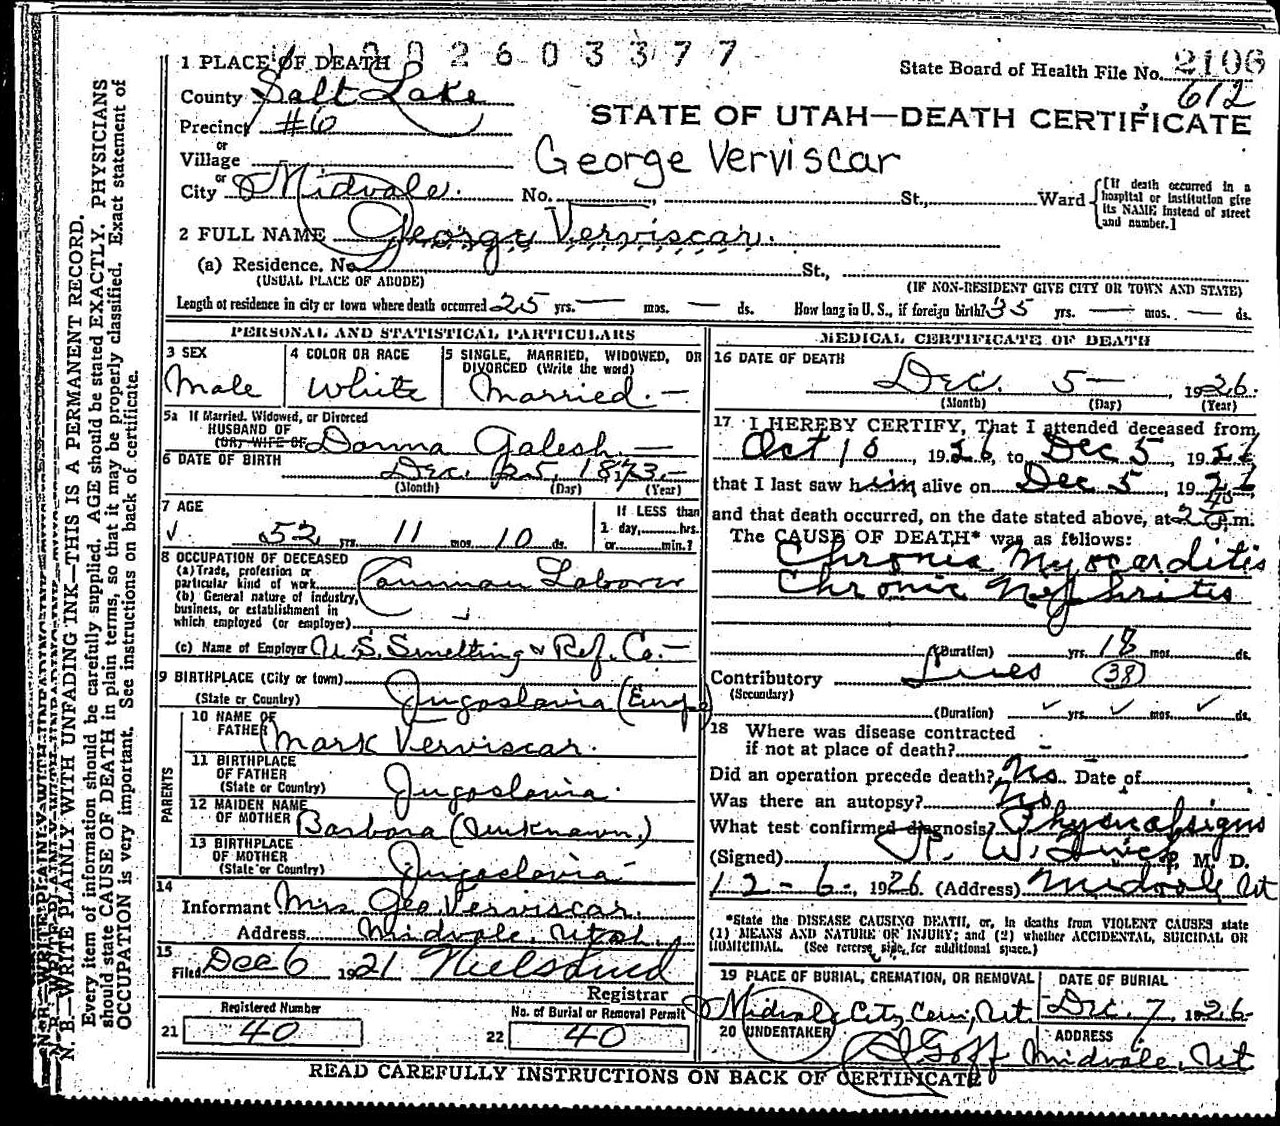 2603377
1 PLACE OF DEATH
State Board of Health File No. 2106
612
County Salt Lake
STATE OF UTAH—DEATH CERTIFICATE
Precinct #6
or
Village
George Verviscar
or
City Midvale. No. St., Ward
[If death occurred in a hospital or institution give its NAME instead of street and number.]
2 FULL NAME George Verviscar.
(a) Residence. No. St.,
(USUAL PLACE OF ABODE) (IF NON-RESIDENT GIVE CITY OR TOWN AND STATE)
Length of residence in city or town where death occurred 25 yrs. — mos. — ds. How long in U. S., if foreign birth? 35 yrs. — mos. — ds.
PERSONAL AND STATISTICAL PARTICULARS
3 SEX
Male
4 COLOR OR RACE
White
5 SINGLE, MARRIED, WIDOWED, OR
DIVORCED (Write the word)
Married.—
5a If Married, Widowed, or Divorced
HUSBAND OF
(OR) WIFE OF Donna Galesh.—
6 DATE OF BIRTH Dec. 25, 1873.—
(Month) (Day) (Year)
7 AGE
52 yrs. 11 mos. 10 ds.
If LESS than
1 day, hrs.
or min.?
8 OCCUPATION OF DECEASED
(a) Trade, profession or
particular kind of work Common Laborer
(b) General nature of industry,
business, or establishment in
which employed (or employer)
(c) Name of Employer U.S. Smelting & Ref. Co.—
9 BIRTHPLACE (City or town)
(State or Country) Jugoslavia (Europe
PARENTS
10 NAME OF
FATHER Mark Verviscar.
11 BIRTHPLACE
OF FATHER
(State or Country) Jugoslavia.
12 MAIDEN NAME
OF MOTHER Barbara (Unknown.)
13 BIRTHPLACE
OF MOTHER
(State or Country) Jugoslavia
14
Informant Mrs Geo. Verviscar.
Address Midvale, Utah.
15
Filed Dec 6 1921
Registrar
Registered Number
21 40
No. of Burial or Removal Permit
22 40
MEDICAL CERTIFICATE OF DEATH
16 DATE OF DEATH
Dec. 5— 1926.
(Month) (Day) (Year)
17 I HEREBY CERTIFY, That I attended deceased from
Oct 10, 1926, to Dec 5, 1926
that I last saw him alive on Dec 5, 1926
and that death occurred, on the date stated above, at 2 40 p.m.
The CAUSE OF DEATH* was as follows:
Chronic Myocarditis
Chronic Nephritis
(Duration) yrs. 18 mos. ds.
Contributory Lues (38)
(Secondary)
(Duration) yrs. mos. ds.
18 Where was disease contracted
if not at place of death? -
Did an operation precede death? No. Date of
Was there an autopsy? No
What test confirmed diagnosis? Physical signs
(Signed) M. D.
12-6-, 1926 (Address) Midvale Ut
*State the DISEASE CAUSING DEATH, or, in deaths from VIOLENT CAUSES state
(1) MEANS AND NATURE OF INJURY; and (2) whether ACCIDENTAL, SUICIDAL OR
HOMICIDAL. (See reverse side for additional space.)
19 PLACE OF BURIAL, CREMATION, OR REMOVAL
Midvale City Cem, Ut.
DATE OF BURIAL
Dec. 7 1926-
20 UNDERTAKER
Goff
ADDRESS
Midvale, Ut
READ CAREFULLY INSTRUCTIONS ON BACK OF CERTIFICATE
N. B.—WRITE PLAINLY WITH UNFADING INK—THIS IS A PERMANENT RECORD.
Every item of information should be carefully supplied. AGE should be stated EXACTLY. PHYSICIANS
should state CAUSE OF DEATH in plain terms, so that it may be properly classified. Exact statement of
OCCUPATION is very important. See instructions on back of certificate.